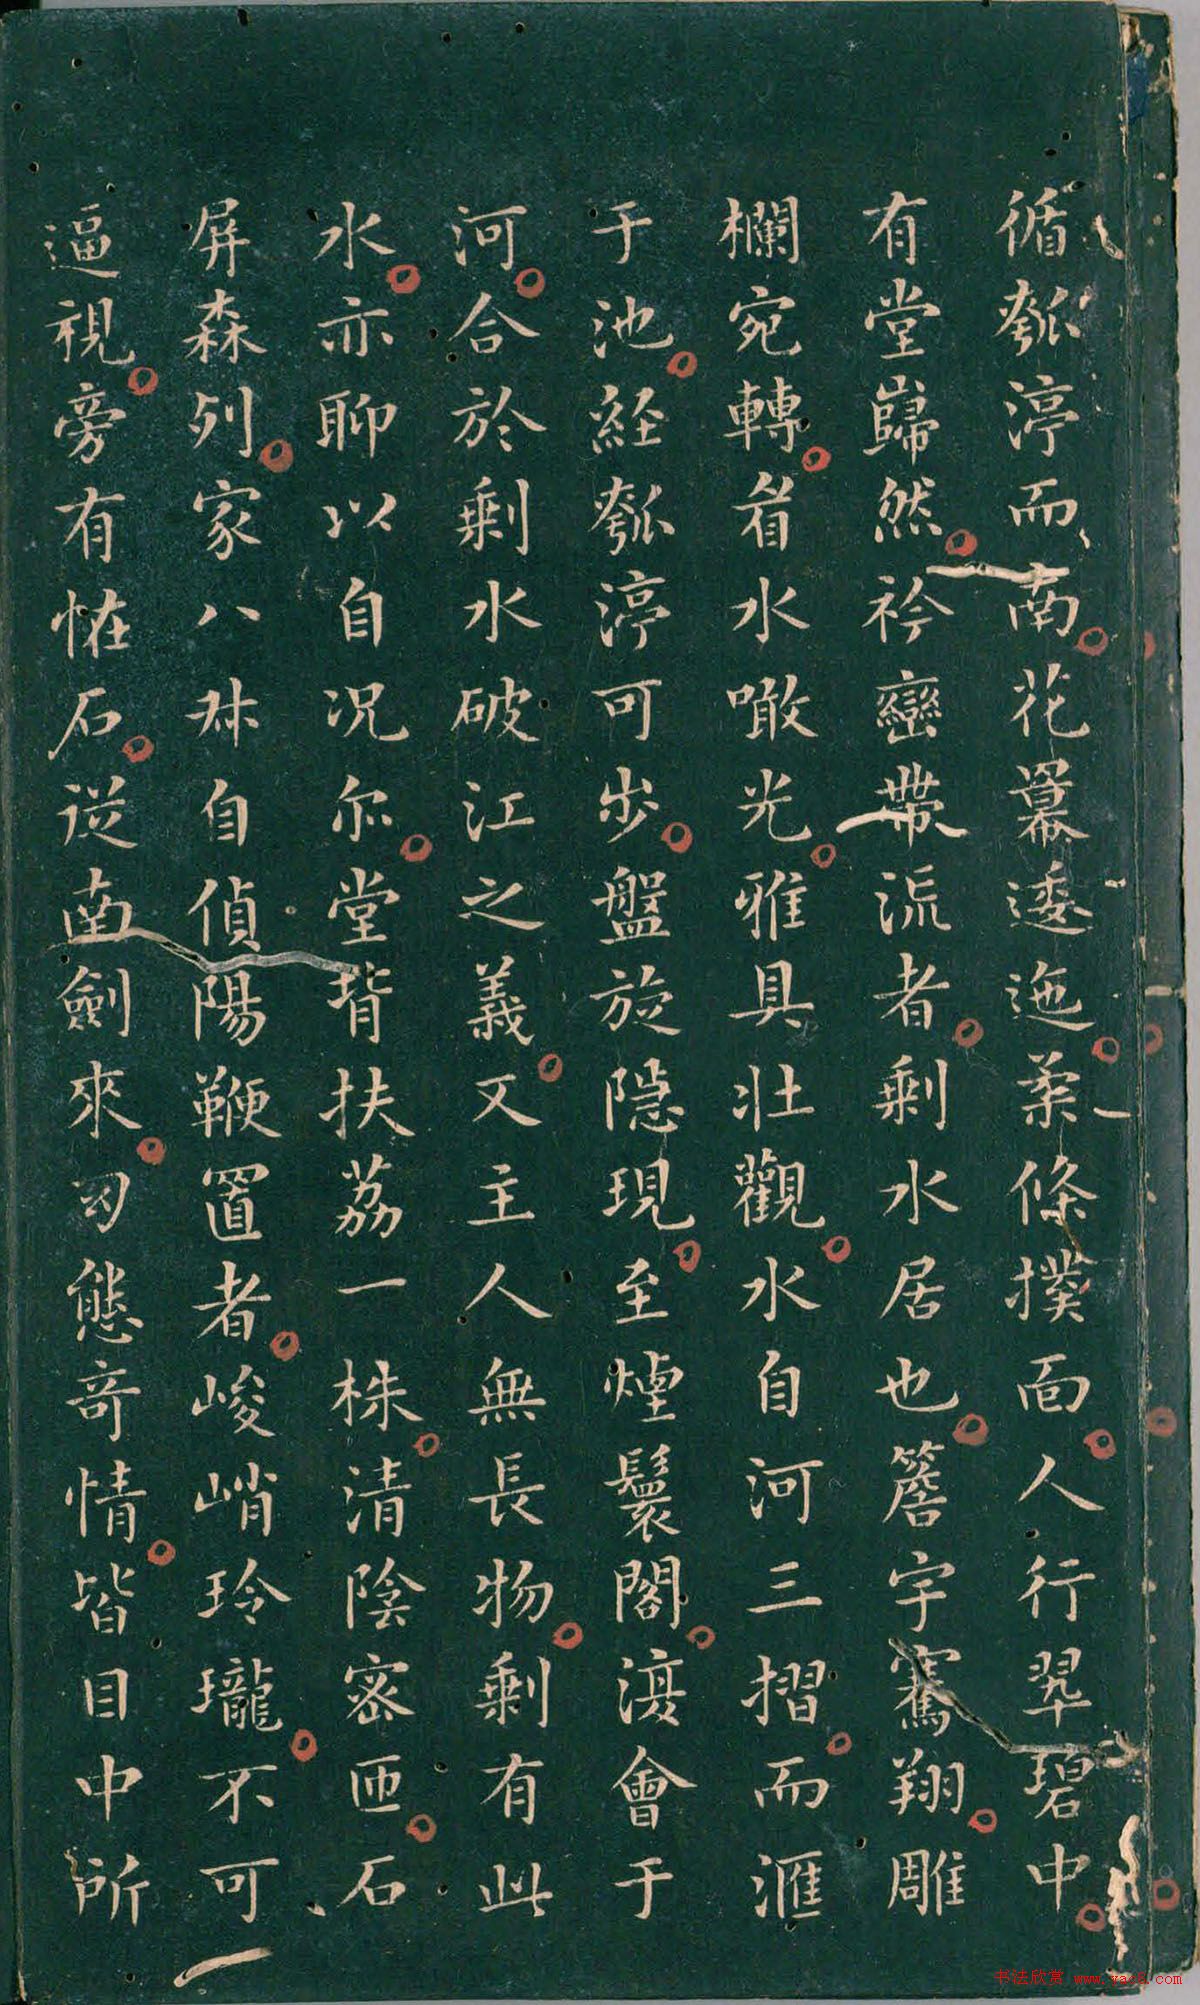 循瓠渟而南花羃逶迤柔條撲面人行翆碧中
有堂巋然衿巒帶流者剰水居也簷宇騫翔雕
欄宛轉者水噉光雅具壯觀水自河三摺而滙
于池経瓠渟可步盤旋隠現至煙鬟閣渡會于
河合於剰水破江之義又主人無長物剰有此
水亦聊以自况尔堂背扶荔一株清陰宻匝石
屏森列家八叔自偵陽鞭置者峻峭玲瓏不可
逼視旁有恠石従南劍來幻態竒情皆目中所
书法欣赏 www.yac8.com